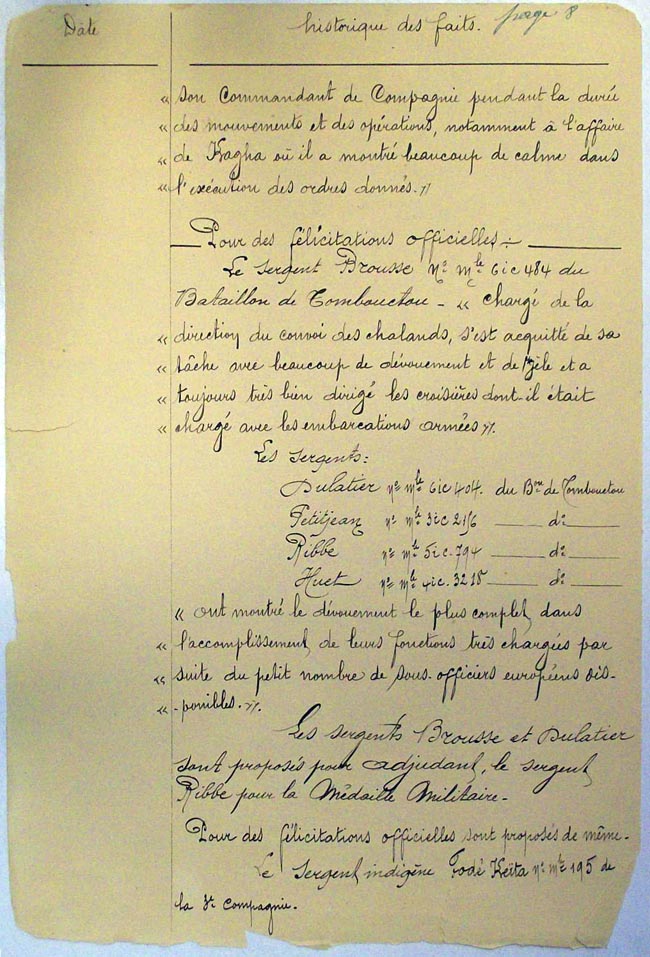 Dâte
historique des faits. page 8
« son Commandant de Compagnie pendant la durée
« des mouvements et des opérations, notamment à l'affaire
« de Kagha où il a montré beaucoup de calme dans
« l'exécution des ordres donnés. »
Pour des félicitations officielles :
Le sergent Brousse No Mle 6ic 484 du
Bataillon de Tombouctou - « chargé de la
« direction du convoi des chalands, s'est acquitté de sa
« tâche avec beaucoup de dévouement et de zèle et a
« toujours très bien dirigé les croisières dont-il était
« chargé avec les embarcations armées ».
Les sergents:
Dulatier no mle 6ic 404. du Bon de Tombouctou
Petitjean no mle 3ic 2156 — do —
Ribbe no mle 5ic. 794 — do —
Huet no mle 4ic. 3218 — do —
« ont montré le dévouement le plus complet dans
« l'accomplissement de leurs fonctions très chargées par
« suite du petit nombre de sous-officiers européens dis-
« -ponibles. ».
Les sergents Brousse et Dulatier
sont proposés pour adjudant, le sergent
Ribbe pour la Médaille Militaire -
Pour des félicitations officielles sont proposés de même -
Le sergent indigène Fodé Keïta no mle 195 de
la 3e compagnie.